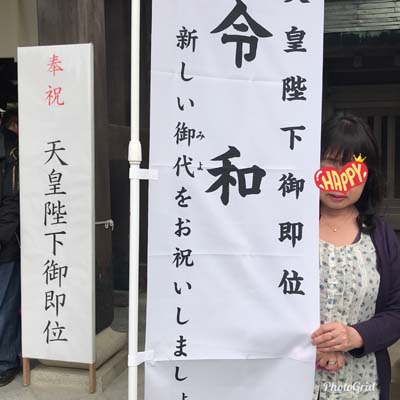 奉祝
天皇陛下御即位
皇陛下御即位
令和
新しい御代をお祝いしましょ
みよ
HAPPY
PhotoGrid